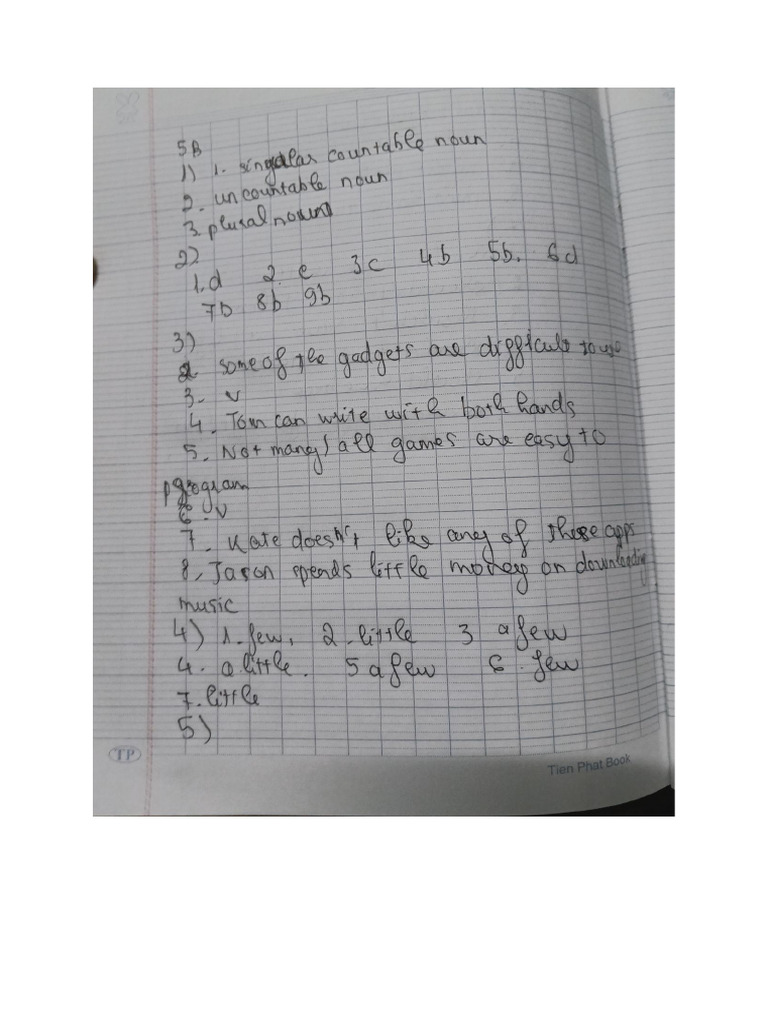 5B
1) 1. singular countable noun
2. uncountable noun
3. plural noun
2)
1. d 2. e 3c 4b 5b. 6d
7D 8b 9b
3)
2 some of the gadgets are difficult to use
3. v
4. Tom can write with both hands
5. Not many / all games are easy to
program
6. v
7. Kate doesn't like any of these apps
8. Jason spends little money on downloading
music
4) 1. few. 2. little 3 a few
4. a little. 5 a few 6. few
7. little
5)
TP
Tien Phat Book